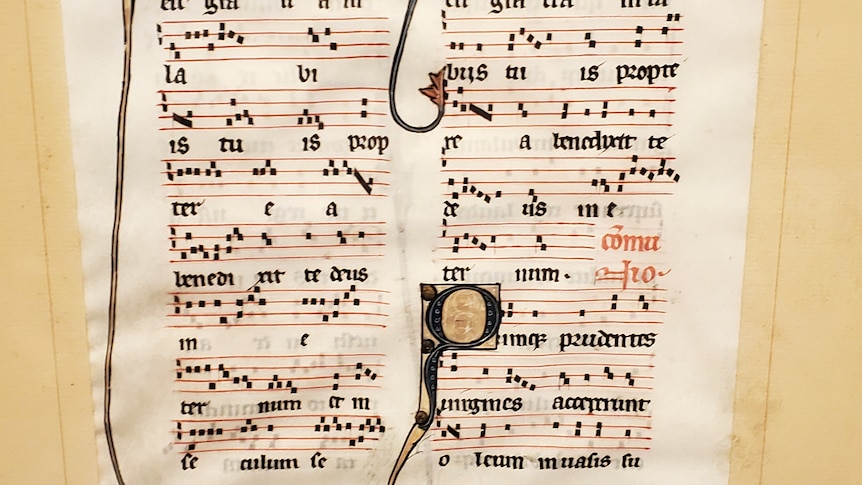 la bi
is tu is prop
ter e a
benedi xit te deus
in e
ter num et in
se culum se
bus tu is propte
re a benedixit te
de us in e
ter num.
cōmu
nio.
Quinqꝫ prudentes
uirgines acceperunt
o leum in uasis su